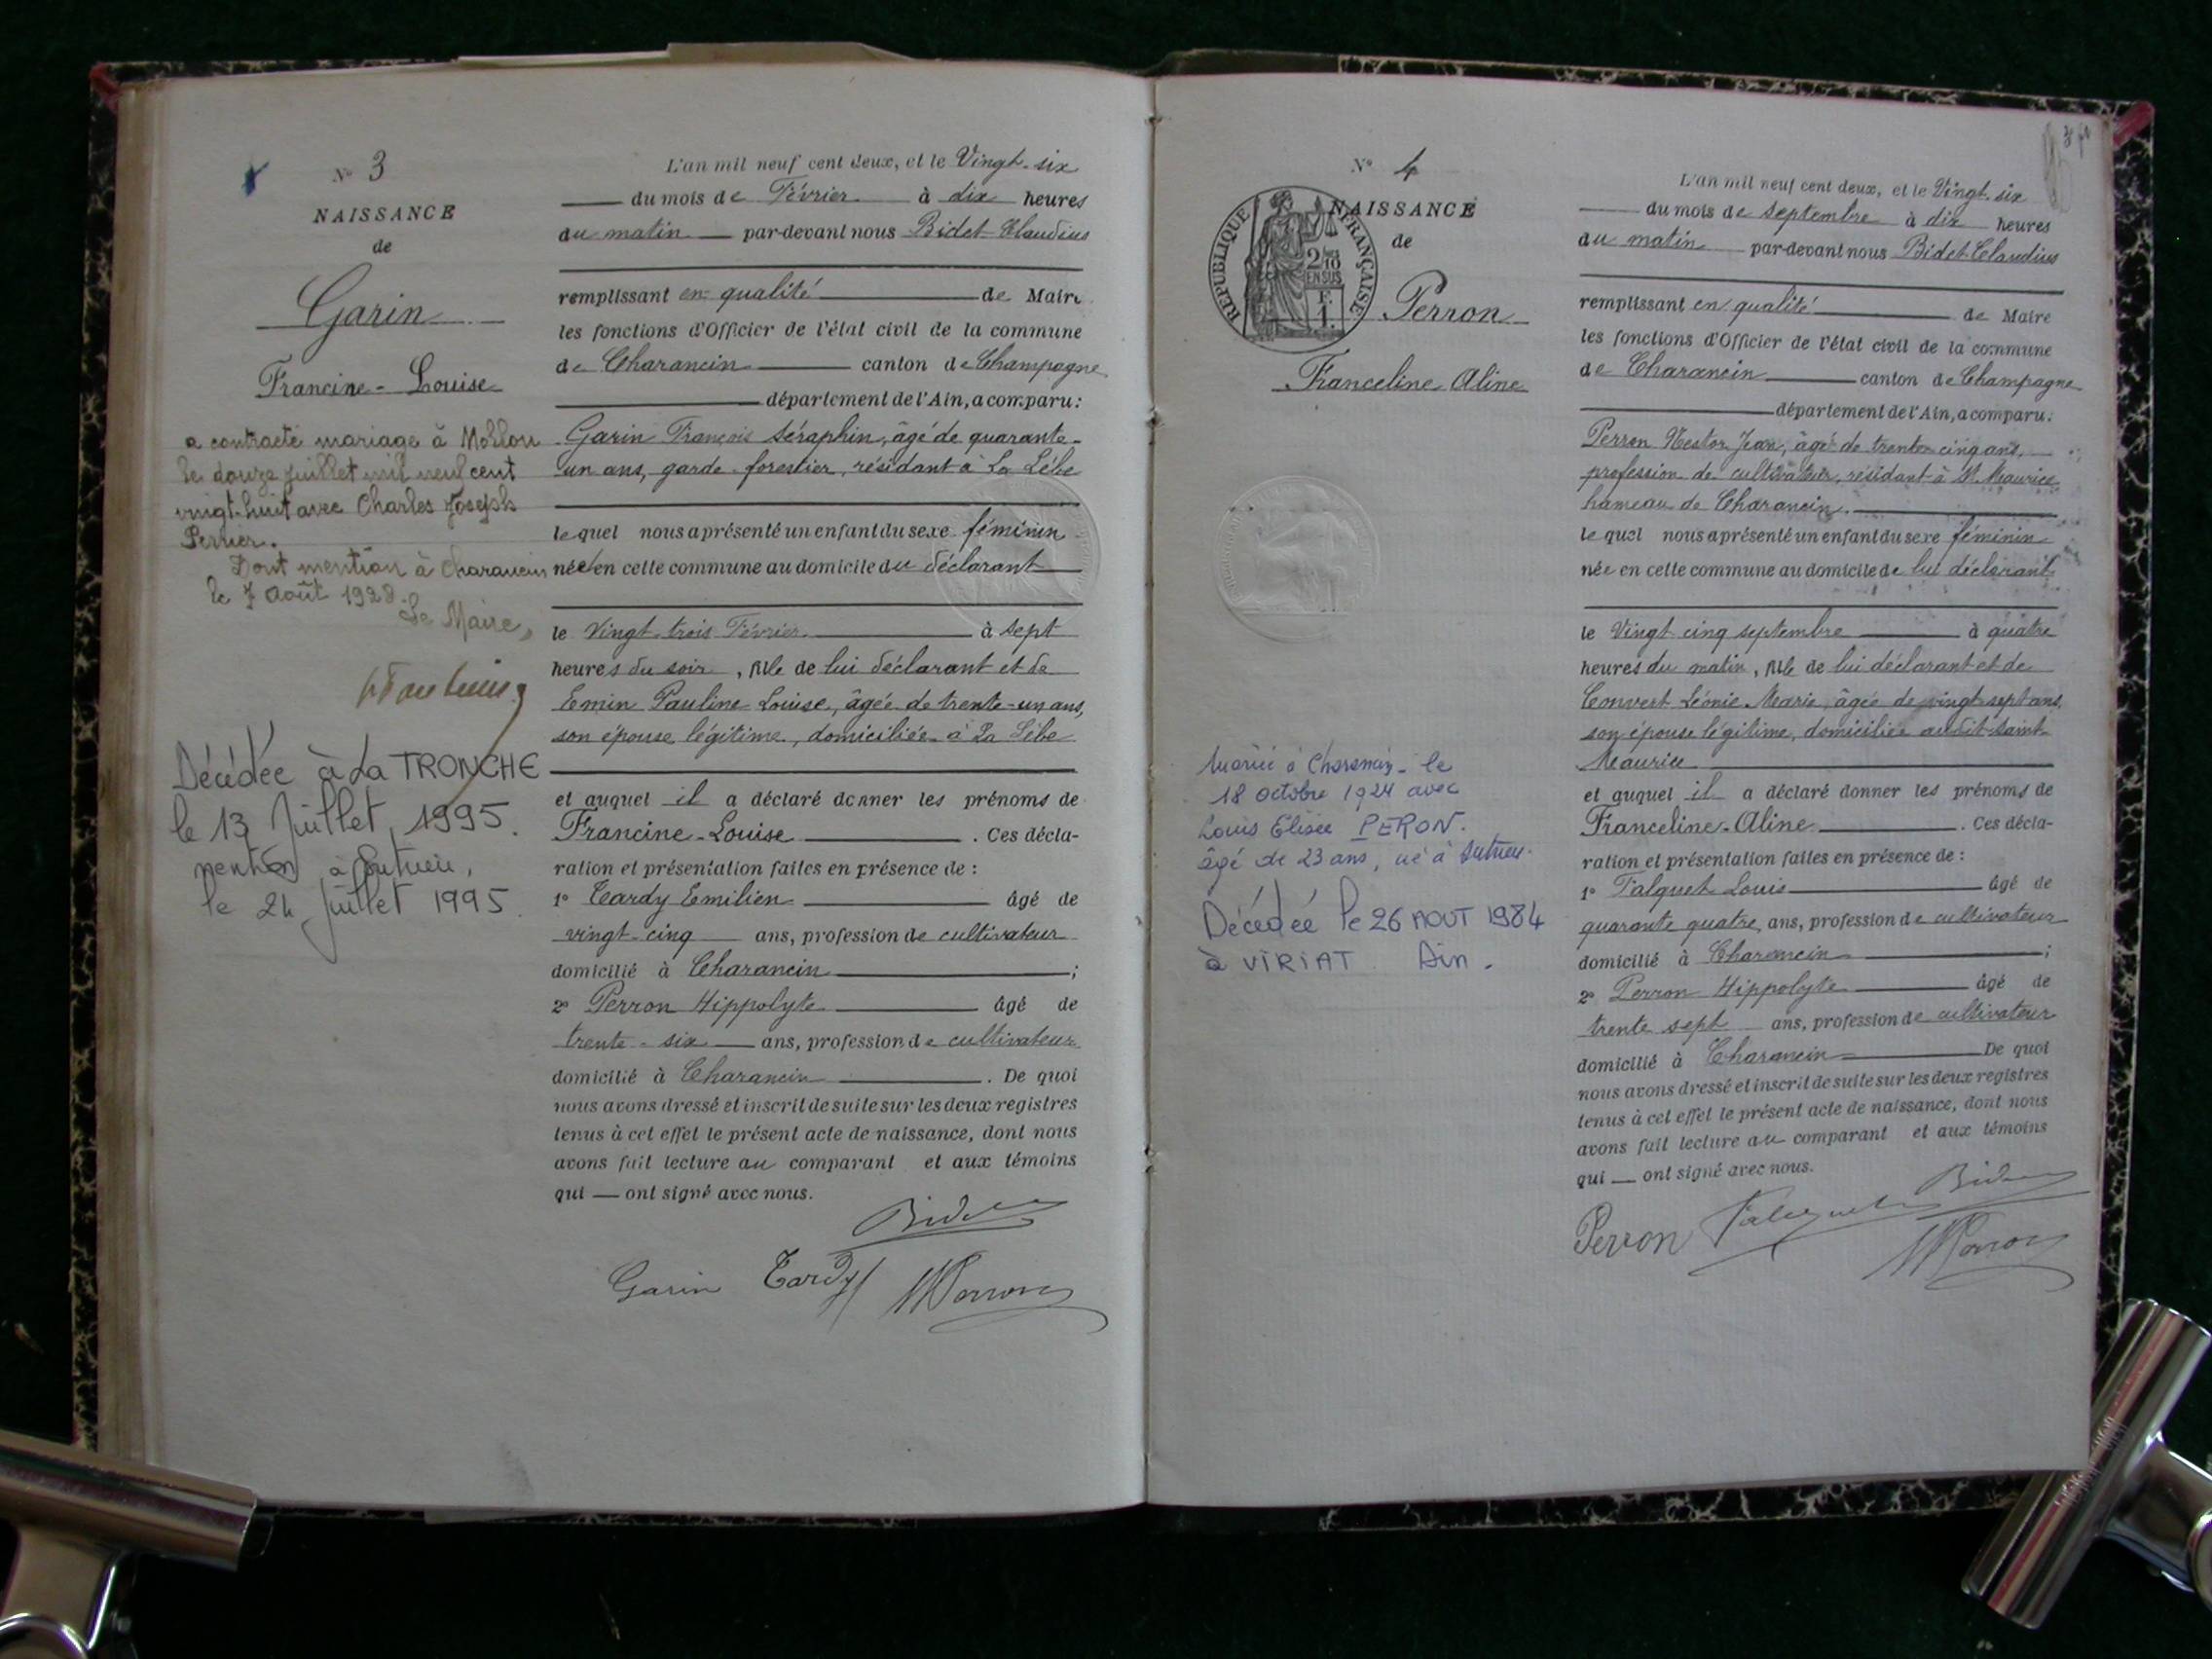 N° 3
NAISSANCE
de
Garin
Francine-Louise
a contracté mariage à
le douze juillet mil neuf cent
vingt-huit avec Charles Joseph
Perrier.
Dont mention à Charancin
le 7 août 1928.
Le Maire,
Décédée à La TRONCHE
le 13 Juillet 1995.
mention à Sutrieu,
le 24 Juillet 1995.
L'an mil neuf cent deux, et le Vingt-six
du mois de Février à dix heures
du matin par-devant nous Bidet Claudius
remplissant en qualité de Maire
les fonctions d'Officier de l'état civil de la commune
de Charancin canton de Champagne
département de l'Ain, a comparu:
Garin François Séraphin, âgé de quarante-
un ans, garde-forestier, résidant à La Lèbe
lequel nous a présenté un enfant du sexe féminin
née en cette commune au domicile du déclarant
le Vingt trois Février à sept
heures du soir, fille de lui déclarant et de
Emin Pauline Louise, âgée de trente-un ans,
son épouse légitime, domiciliée à La Lèbe
et auquel il a déclaré donner les prénoms de
Francine-Louise. Ces décla-
ration et présentation faites en présence de :
1° Tardy Emilien âgé de
vingt-cinq ans, profession de cultivateur
domicilié à Charancin ;
2° Perron Hippolyte âgé de
trente-six ans, profession de cultivateur
domicilié à Charancin. De quoi
nous avons dressé et inscrit de suite sur les deux registres
tenus à cet effet le présent acte de naissance, dont nous
avons fait lecture au comparant et aux témoins
qui — ont signé avec nous.
Bidet
Garin Tardy HPerron
N° 4
NAISSANCE
de
REPUBLIQUE FRANÇAISE
2/10 EN SUS
F. 1
Perron
Franceline Aline
Mariée à Charancin le
18 octobre 1924 avec
Louis Elisée PERON.
âgé de 23 ans, né à Sutrieu.
Décédée le 26 AOUT 1984
à VIRIAT Ain.
L'an mil neuf cent deux, et le Vingt-six
du mois de septembre à dix heures
du matin par-devant nous Bidet Claudius
remplissant en qualité de Maire
les fonctions d'Officier de l'état civil de la commune
de Charancin canton de Champagne
département de l'Ain, a comparu:
Perron Nestor Jean, âgé de trente cinq ans,
profession de cultivateur, résidant à St Maurice
hameau de Charancin.
lequel nous a présenté un enfant du sexe féminin
née en cette commune au domicile de lui déclarant
le Vingt cinq septembre à quatre
heures du matin, fille de lui déclarant et de
Convert Léonie Marie, âgée de vingt-sept ans,
son épouse légitime, domiciliée audit Saint
Maurice
et auquel il a déclaré donner les prénoms de
Franceline-Aline. Ces décla-
ration et présentation faites en présence de :
1° Falquet Louis âgé de
quarante quatre ans, profession de cultivateur
domicilié à Charancin ;
2° Perron Hippolyte âgé de
trente sept ans, profession de cultivateur
domicilié à Charancin De quoi
nous avons dressé et inscrit de suite sur les deux registres
tenus à cet effet le présent acte de naissance, dont nous
avons fait lecture au comparant et aux témoins
qui — ont signé avec nous.
Bidet
Perron Falquet HPerron